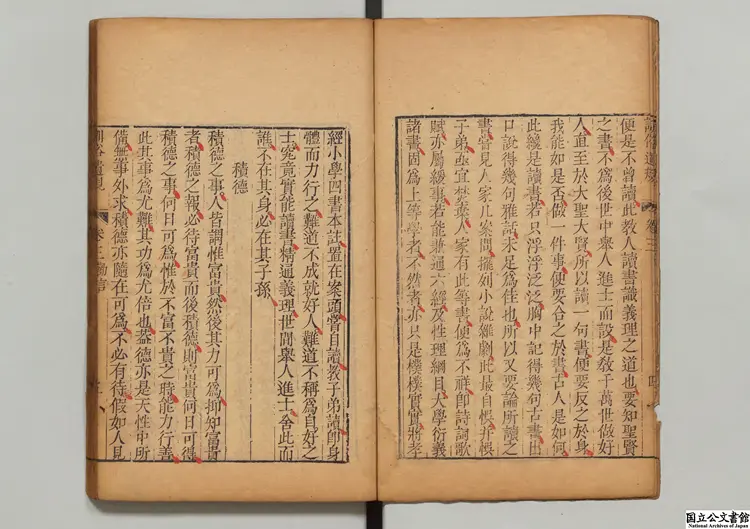 便是不曾讀此教人讀書識義理之道也要知聖賢
之書不爲後世中舉人進士而設是敎千萬世做好
人直至於大聖大賢所以讀一句書便要反之於身
我能如是否做一件事便要合之於書古人是如何
此纔是讀書若只浮浮泛泛胸中記得幾句古書出
口說得幾句雅話未足爲佳也所以又要論所讀之
書嘗見人家几案間擺列小說雜劇此最自悞幷悞
子弟亟宜焚棄人家有此等書便爲不祥即詩詞歌
賦亦屬緩事若能兼通六經及性理綱目大學衍義
諸書固爲上等學者不然者亦只是樸樸實實將孝
經小學四書本註置在案頭嘗自讀教子弟讀即身
體而力行之難道不成就好人難道不稱爲自好之
士究竟實能讀書精通義理世間舉人進士舍此而
誰不在其身必在其子孫
積德
積德之事人皆謂惟富貴然後其力可爲抑知富貴
者積德之報必待富貴而後積德則富貴何日可得
積德之事何日可爲惟於不富不貴之時能力行善
此其事爲尤難其功爲尤倍也蓋德亦是天性中所
備無事外求積德亦隨在可爲不必有待假如人見
訓俗遺規
卷三
國立公文書館
National Archives of Japan